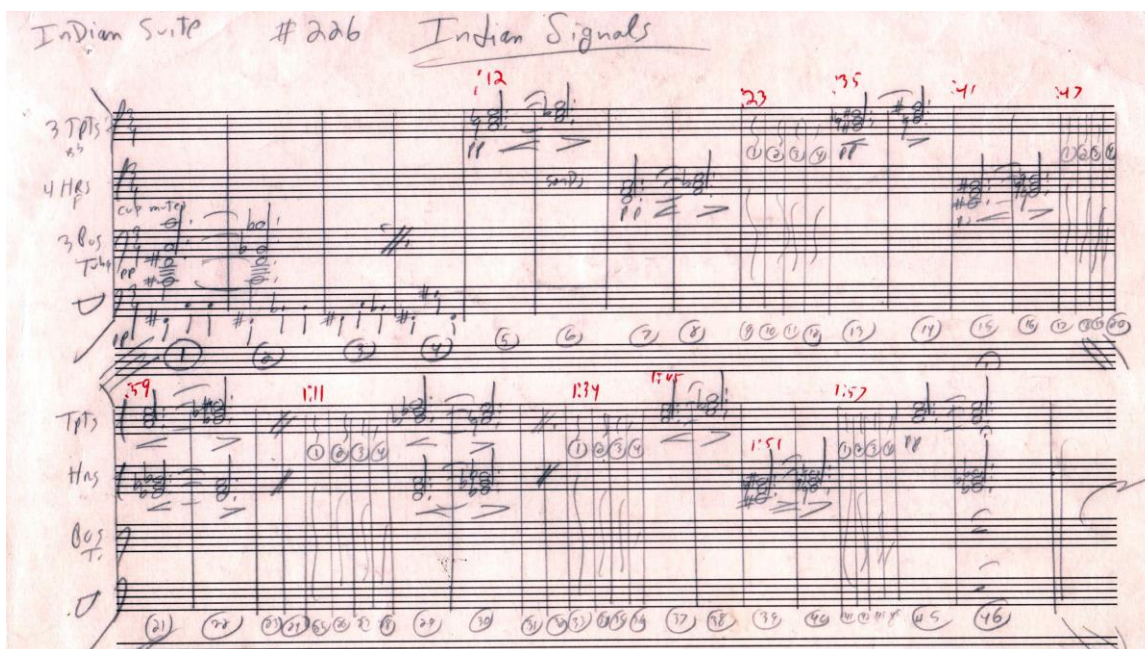 InDian Suite #226 Indian Signals
:12 :23 :35 :41 :47
3 Tpts
Bb
1 2 3 4
1 2 3 4
pp pp
4 HRs
F
pp
cup mute
3 Bos
Tuba
pp
pp
1 2 3 4 5 6 7 8 9 10 11 12 13 14 15 16 17 18 19 20
:59 1:11 1:34 1:45 1:57
Tpts
1 2 3 4
1 2 3 4
1 2 3 4
pp
1:51
Hrs
Bos
T.
21 22 23 24 25 26 27 28 29 30 31 32 33 34 35 36 37 38 39 40 41 42 43 44 45 46